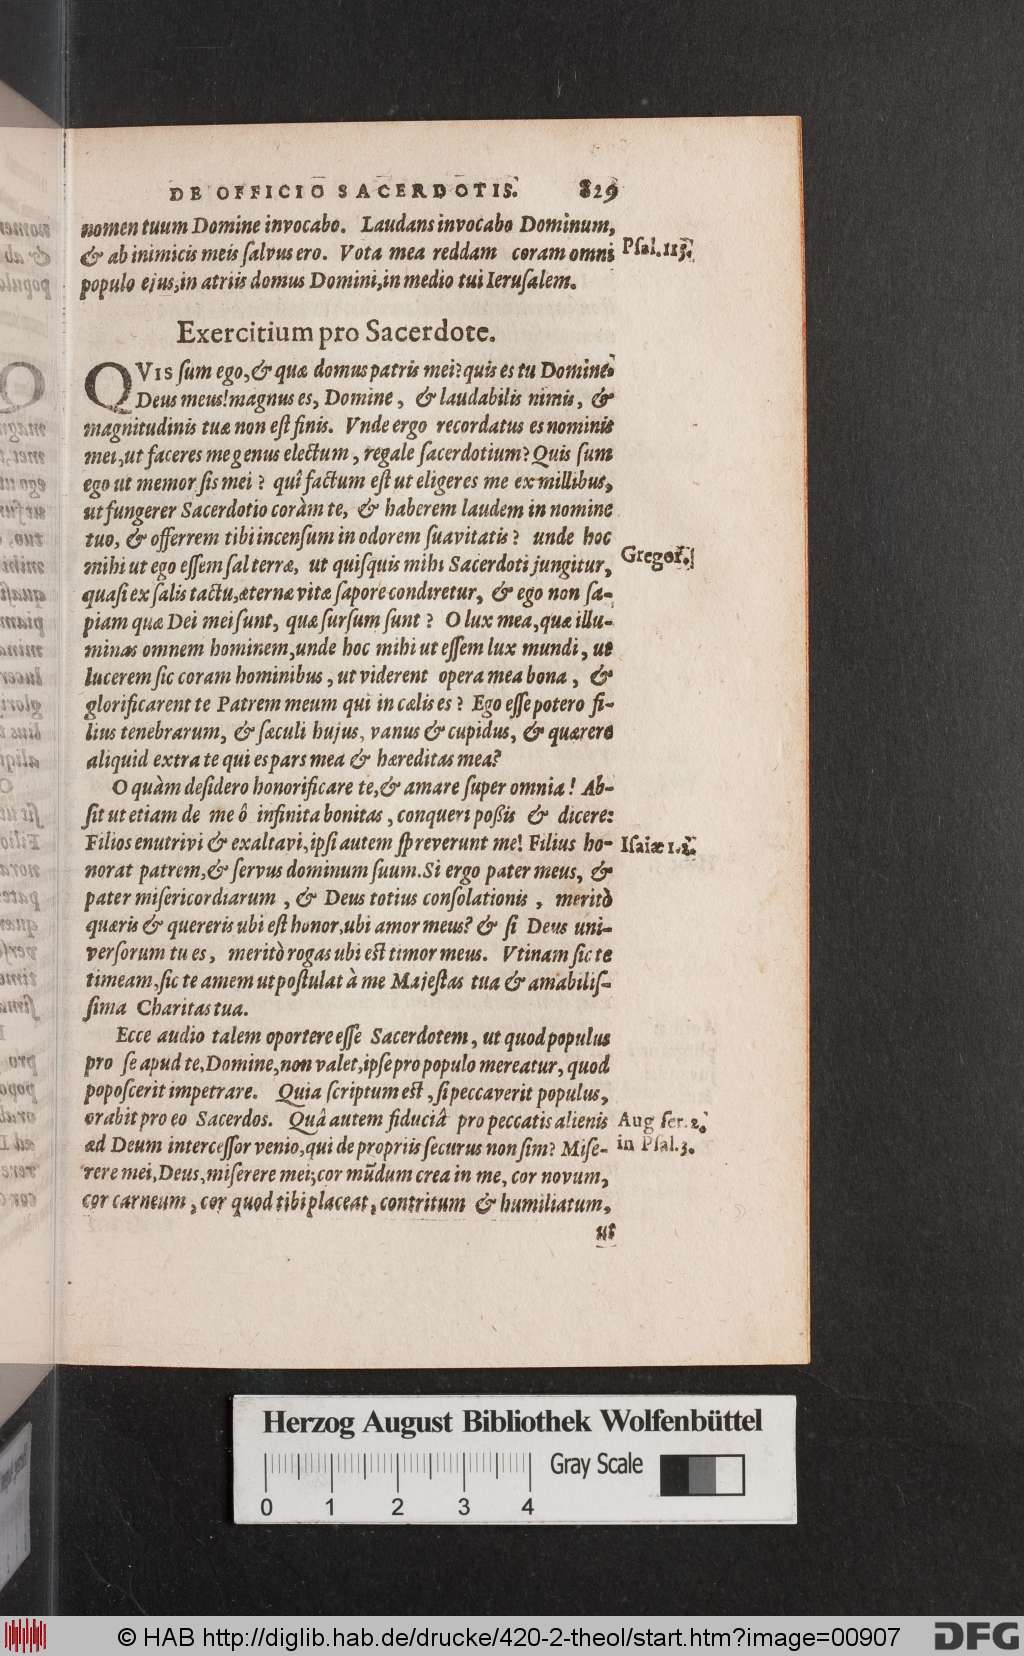 DE OFFICIO SACERDOTIS. 829
nomen tuum Domine invocabo. Laudans invocabo Dominum,
& ab inimicis meis ſalvus ero. Vota mea reddam coram omni
Pſal. 115.
populo ejus, in atriis domus Domini, in medio tui Ieruſalem.
Exercitium pro Sacerdote.
QVIS ſum ego, & quæ domus patris mei? quis es tu Domine
Deus meus! magnus es, Domine, & laudabilis nimis, &
magnitudinis tuæ non eſt finis. Vnde ergo recordatus es nominis
mei, ut faceres me genus electum, regale ſacerdotium? Quis ſum
ego ut memor ſis mei? quî factum eſt ut eligeres me ex millibus,
ut fungerer Sacerdotio coràm te, & haberem laudem in nomine
tuo, & offerrem tibi incenſum in odorem ſuavitatis? unde hoc
mihi ut ego eſſem ſal terræ, ut quiſquis mihi Sacerdoti jungitur,
Gregor.
quaſi ex ſalis tactu, æternæ vitæ ſapore condiretur, & ego non ſa-
piam quæ Dei mei ſunt, quæ ſurſum ſunt? O lux mea, quæ illu-
minas omnem hominem, unde hoc mihi ut eſſem lux mundi, ut
lucerem ſic coram hominibus, ut viderent opera mea bona, &
glorificarent te Patrem meum qui in cælis es? Ego eſſe potero fi-
lius tenebrarum, & ſæculi hujus, vanus & cupidus, & quærere
aliquid extra te qui es pars mea & hæreditas mea?
O quàm deſidero honorificare te, & amare ſuper omnia! Ab-
ſit ut etiam de me ô infinita bonitas, conqueri poßis & dicere:
Filios enutrivi & exaltavi, ipſi autem ſpreverunt me! Filius ho-
Iſaiæ 1.2.
norat patrem, & ſervus dominum ſuum. Si ergo pater meus, &
pater miſericordiarum, & Deus totius conſolationis, meritò
quæris & quereris ubi eſt honor, ubi amor meus? & ſi Deus uni-
verſorum tu es, meritò rogas ubi eſt timor meus. Vtinam ſic te
timeam, ſic te amem ut poſtulat à me Majeſtas tua & amabiliſ-
ſima Charitas tua.
Ecce audio talem oportere eſſe Sacerdotem, ut quod populus
pro ſe apud te, Domine, non valet, ipſe pro populo mereatur, quod
popoſcerit impetrare. Quia ſcriptum eſt, ſi peccaverit populus,
orabit pro eo Sacerdos. Quâ autem fiduciâ pro peccatis alienis
Aug ſer. 2.
ad Deum interceſſor venio, qui de propriis ſecurus non ſim? Miſe-
in Pſal. 3.
rere mei, Deus, miſerere mei; cor mūdum crea in me, cor novum,
cor carneum, cor quod tibi placeat, contritum & humiliatum,
ut
Herzog August Bibliothek Wolfenbüttel
Gray Scale
0 1 2 3 4
© HAB http://diglib.hab.de/drucke/420-2-theol/start.htm?image=00907
DFG